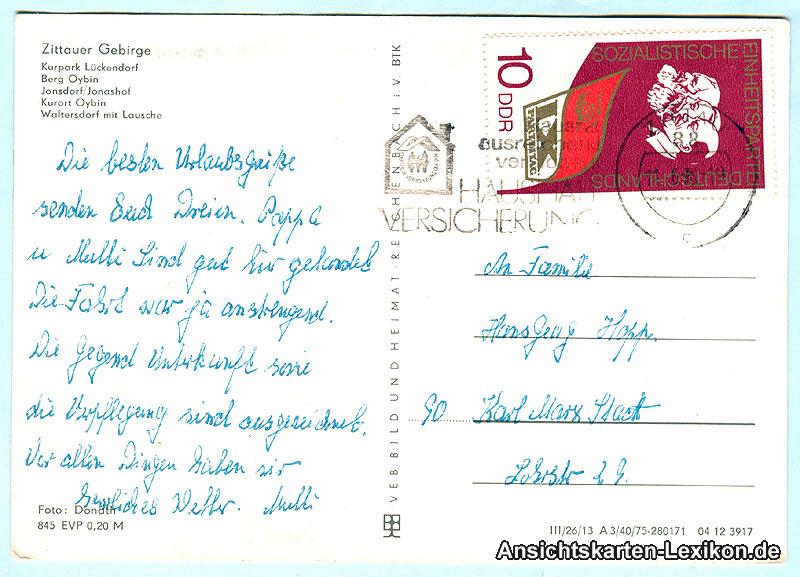 Zittauer Gebirge
Kurpark Lückendorf
Berg Oybin
Jonsdorf/Jonashof
Kurort Oybin
Waltersdorf mit Lausche
Die besten Urlaubsgrüße
senden Euch Dreien. Pappa
u Mutti Sind gut hir gelandet
Die Fahrt war ja anstrengend.
Die Gegend Unterkunft sowie
die Verpflegung sind ausgezeichnet.
Vor allen Dingen haben wir
herrliches Wetter. Mutti
Foto: Donath
845 EVP 0,20 M
VEB BILD UND HEIMAT · REICHENBACH i. V. BTK
10 DDR
SOZIALISTISCHE
EINHEITSPARTEI
DEUTSCHLANDS
HAUSHALT
VERSICHERUNG
An Familie
Hans Georg Hopp.
90 Karl Marx Stadt
III/26/13 A 3/40/75-280171 04 12 3917
Ansichtskarten-Lexikon.de